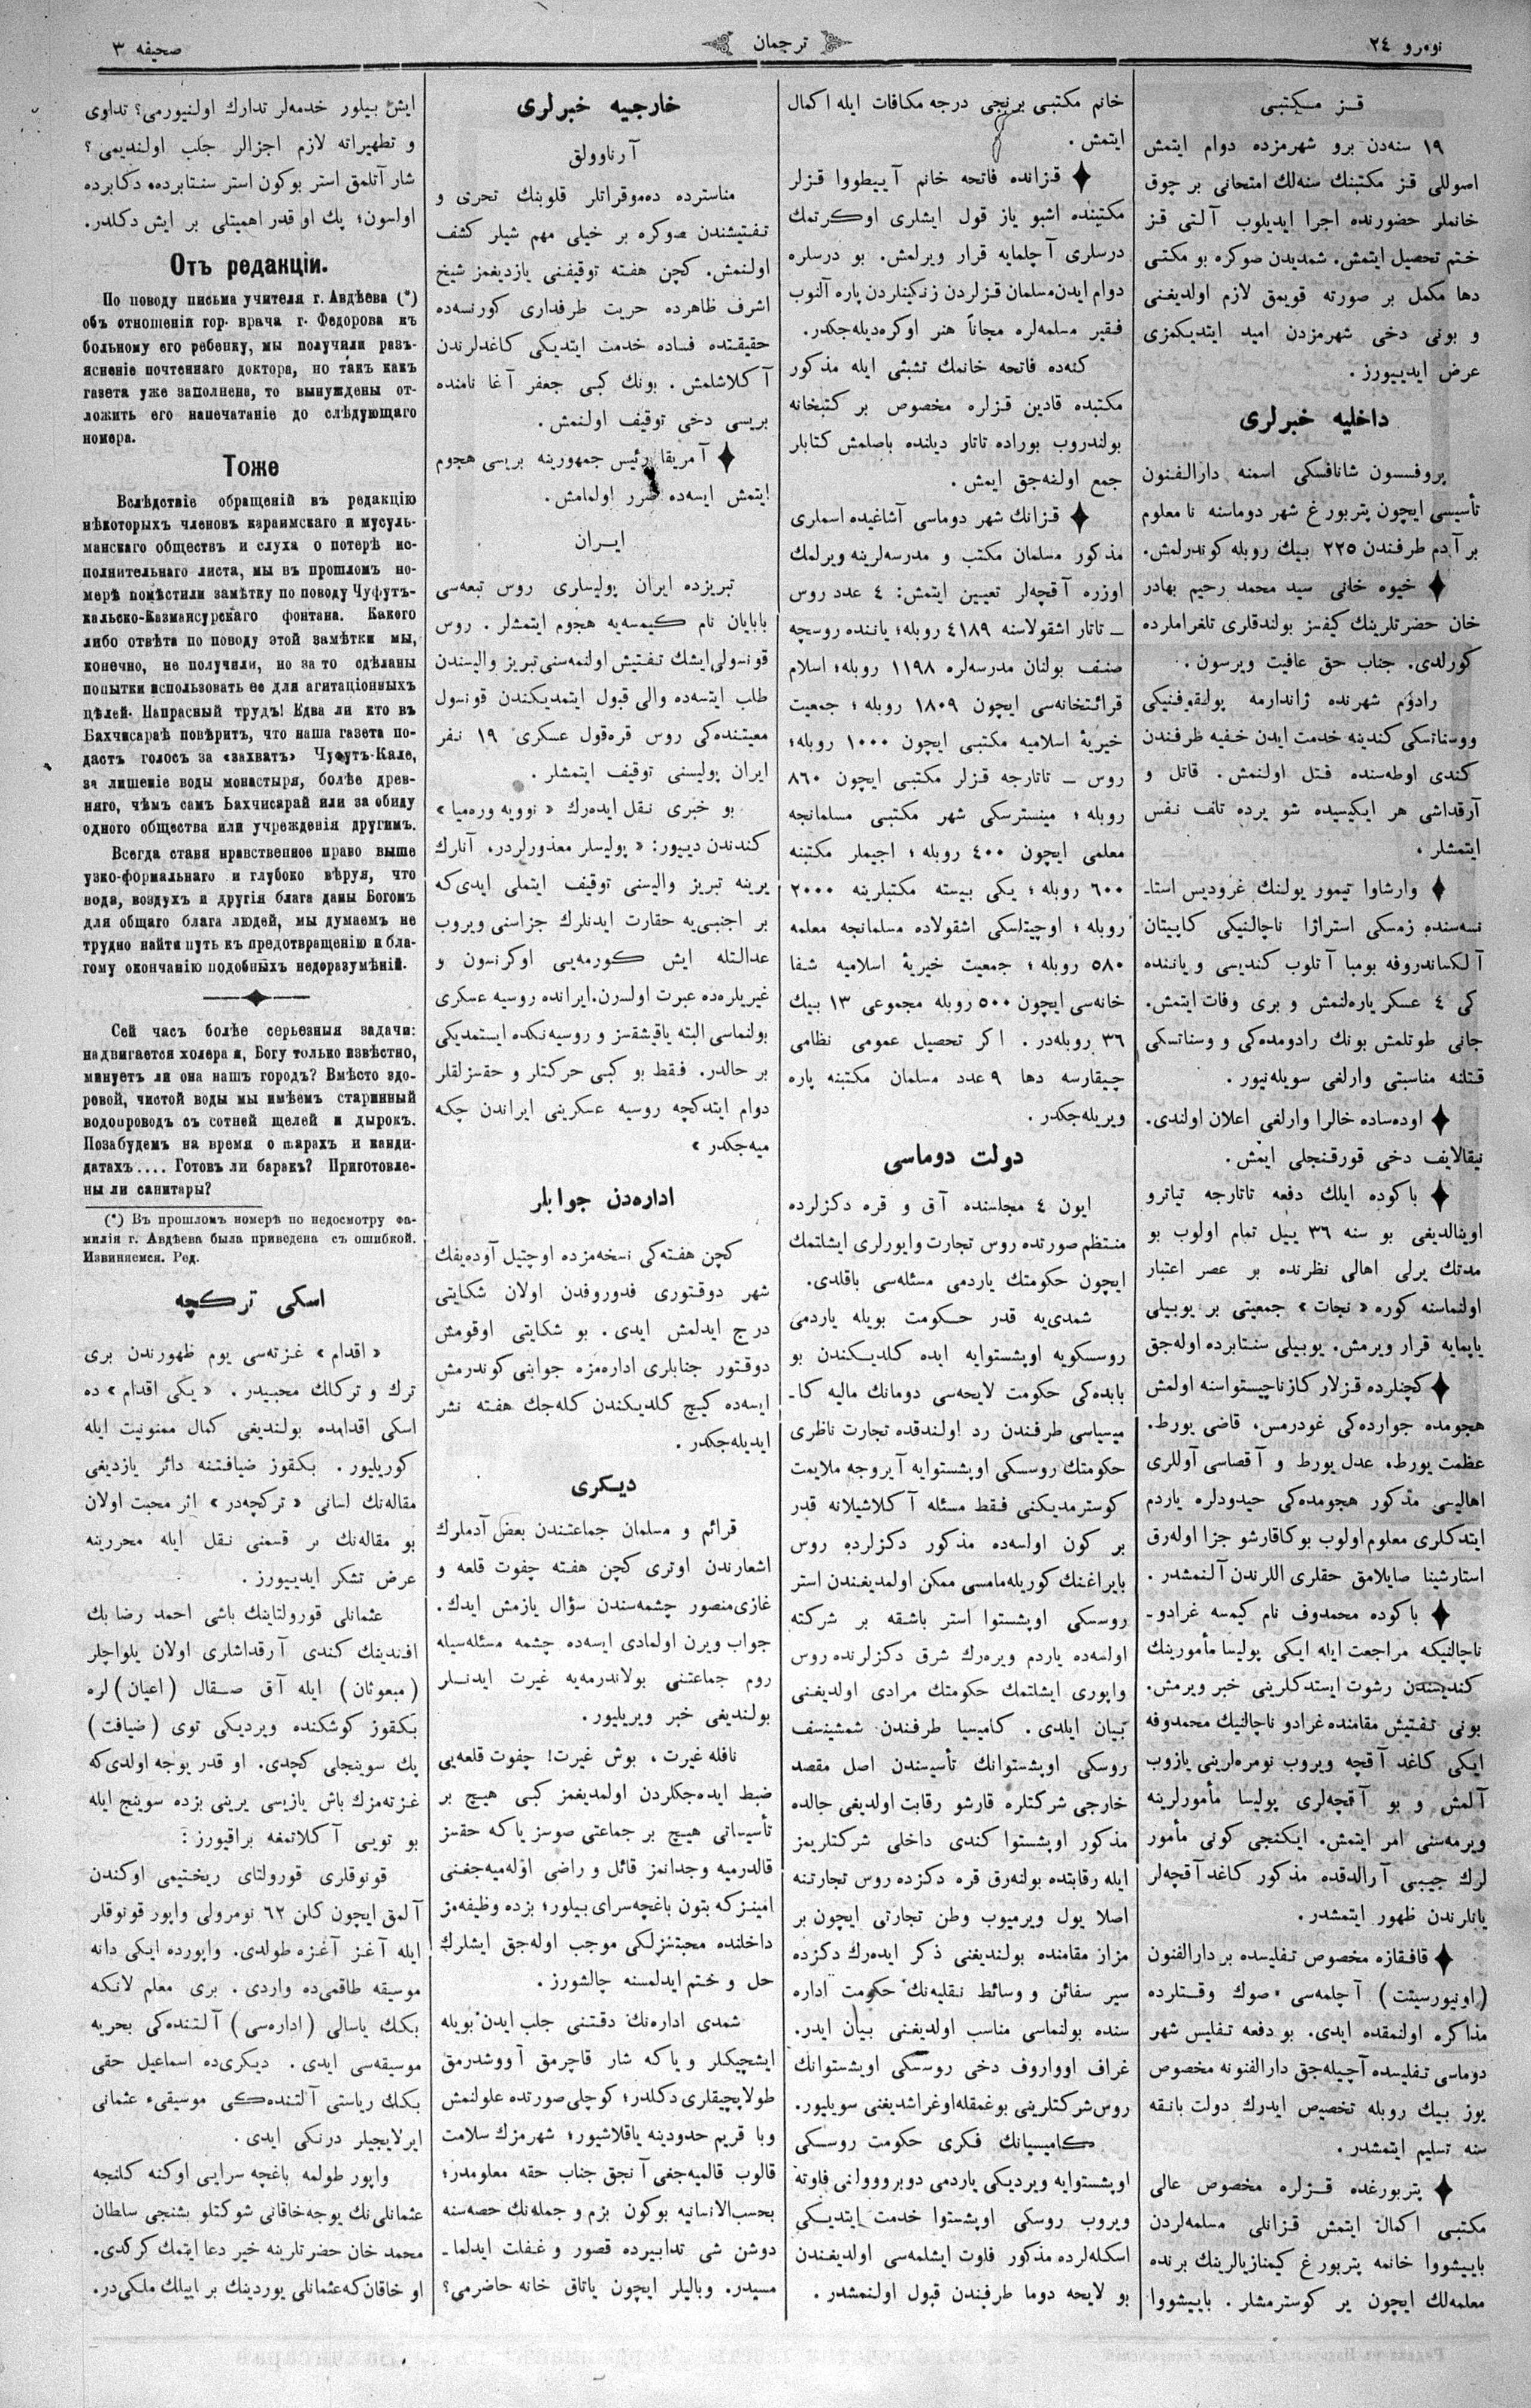 نومرو ٢٤
ترجمان
صحيفه ٣
قـز مـكتبى
١٩ سنه‌دن برو شهرمزده دوام ايتمش
اصوللى قـز مكتبنك سنه‌لك امتحانى بر چوق
خانملر حضورنده اجرا ايديلوب آلـتى قـز
خـتم تحصيل ايتمش. شمديدن صوكره بو مكتبى
دها مكمل بر صورته قويمق لازم اولديغنى
و بونى دخى شهرمزدن اميد ايتديكمزى
عرض ايديـيورز .
داخليه خبرلرى
پروفسسون شانافسكى اسمنه دارالـفنون
تأسيسى ايچون پتربورغ شهر دوماسنه نامعلوم
بر آدم طرفندن ٢٢٥ بيك روبله كوندرلمش.
خيوه خانى سيد محمد رحيم بهادر
خان حضرتلرينك كيفسز بولندقلرى تلغراملرده
كورلدى. جناب حق عافيت ويرسون .
رادؤم شهرنده ژاندارمه پولقوفنيكى
ووسناتسكى كندينه خدمت ايدن خـفيه طرفـندن
كندى اوطه‌سنده قـتل اولـنمش. قاتل و
آرقداشى هر ايكيسيده شو يرده تلف نفس
ايتمشلر .
وارشاوا تيمور يولـنك غروديس استا-
نسه‌سنده زمسكى استراژا ناچالـنيكى كاپيتان
آلكساندروفه بومبا آتلوب كنديسى و يانـنده
كى ٤ عسكر ياره‌لنمش و برى وفات ايتمش.
جانى طوتلمش بونك رادومده‌كى ووسناتسكى
قـتلنه مناسبتى وارلغى سويله‌نيور.
اوده‌ساده خالرا وارلغى اعلان اولندى.
نيقالايف دخى قورقـنجلى ايمش.
باكوده ايلك دفعه تاتارجه تياترو
اوينالديغى بو سنه ٣٦ ييل تمام اولوب بو
مدتك يرلى اهالى نظرنده بر عصر اعتبار
اولنماسنه كوره « نجات » جمعيتى بر يوبيلى
ياپمايه قرار ويرمش. يوبيلى سنـتابرده اوله‌جق
كچنلرده قـزلار كازناچيستواسنه اولمش
هجومده جوارده‌كى غودرمس، قاضى يورط،
عظمت يورط، عدل يورط و آقصاسى آوللرى
اهاليسى مذكور هجومده‌كى حيدودلره ياردم
ايتدكلرى معلوم اولوب بوكاقارشو جزا اوله‌رق
استارشينا صايلامق حقلرى اللرندن آلـنمشدر .
باكوده محمدوف نام كيمسه غرادو-
ناچالنيكه مراجعت ايله ايكى پوليسا مأمورينك
كنديسندن رشوت ايستدكلرينى خبر ويرمش.
بونى تـفـتيش مقامنده غرادوناچالنيك محمدوفه
ايكى كاغد آقچه ويروب نومره‌لرينى يازوب
آلمش و بو آقچه‌لرى پوليسا مأمورلرينه
ويرمه‌سنى امر ايتمش. ايكنجى كونى مأمور
لرك جيبى آرالدقده مذكور كاغد آقچه‌لر
يانلرندن ظهور ايتمشدر.
قافـقازه مخصوص تـفليسده بر دارالفنون
(اونيورسيتت) آچلمه‌سى صوك وقـتلرده
مذاكره اولنمقده ايدى. بو دفعه تـفليس شهر
دوماسى تـفليسده آچيله‌جق دارالفنونه مخصوص
يوز بيك روبله تخصيص ايدرك دولت بانقه
سنه تسليم ايتمشدر .
پتربورغده قـزلره مخصوص عالى
مكتبى اكمال ايتمش قـزانلى مسلمه‌لردن
بايبيشووا خانمه پتربورغ كيمنازيالرينك برنده
معلمه‌لك ايچون ير كوسترمشلر . بايبيشووا
خانم مكتبـى برنجى درجه مكافات ايله اكمال
ايتمش .
قـزانده فاتحه خانم آيبطووا قـزلر
مكتبنده اشبو ياز قول ايشلرى اوكرتمك
درسلرى آچلمايه قرار ويرلمش. بو درسلره
دوام ايدن مسلمان قـزلردن زنكينلردن پاره آلنوب
فـقير مسلمه‌لره مجاناً هنر اوكره‌ديله‌جكدر.
كنه‌ده فاتحه خانمك تشبثى ايله مذكور
مكتبده قادين قـزلره مخصوص بر كتبخانه
بولندروب بوراده تاتار ديلنده باصلمش كتابلر
جمع اولنه‌جق ايمش .
قـزانك شهر دوماسى آشاغيده اسملرى
مذكور مسلمان مكتب و مدرسه‌لرينه ويرلمك
اوزره آقچه‌لر تعيين ايتمش: ٤ عدد روس
ــ تاتار اشقولاسنه ٤١٨٩ روبله؛ ياننده روسچه
صنـف بولنان مدرسه‌لره ١١٩٨ روبله؛ اسلام
قرائتخانه‌سى ايچون ١٨٠٩ روبله؛ جمعيت
خيريۀ اسلاميه مكتبى ايچون ١٠٠٠ روبله؛
روس ــ تاتارجه قـزلر مكتبى ايچون ٨٦٠
روبله؛ مينسترسكى شهر مكتبـى مسلمانجه
معلمى ايچون ٤٠٠ روبله؛ اجيملر مكتبنه
٦٠٠ روبله؛ يكى بيسته مكتبلرينه ٢٠٠٠
روبله؛ اوچيتلسكى اشقولاده مسلمانجه معلمه
٥٨٠ روبله؛ جمعيت خيريۀ اسلاميه شـفا
خانه‌سى ايچون ٥٠٠ روبله مجموعى ١٣ بيك
٣٦ روبله‌در . اكر تحصيل عمومى نظامى
چيقارسه دها ٩ عدد مسلمان مكتبنه پاره
ويريله‌جكدر.
دولت دوماسى
ايون ٤ مجلسنده آق و قره دكزلرده
منـتظم صورتده روس تجارت واپورلرى ايشلتمك
ايچون حكومتك ياردمى مسئله‌سى باقلدى.
شمدى‌يه قدر حـكومت بويله ياردمى
روسسكويه اوبشستوايه ايده كلديـكندن بو
بابده‌كى حكومت لايحه‌سى دومانك ماليه كا-
ميسياسى طرفـندن رد اولـندقده تجارت ناظرى
حكومتك روسسكى اوبشستوايه آيروجه ملايمت
كوسترمديكنى فـقط مسئله آكلاشيلانه قدر
بر كون اولسه‌ده مذكور دكزلرده روس
بايراغنك كوريله‌مامسى ممكن اولمديغندن استر
روسسكى اوبشستوا استر باشـقه بر شركته
اولسه‌ده ياردم ويره‌رك شرق دكزلرنده روس
واپورى ايشلتمك حكومتك مرادى اولديغنى
بيان ايلدى. كاميسيا طرفـندن شمشينسف
روسكى اوبشستوانك تأسيسندن اصل مقصد
خارجى شركتلره قارشو رقابت اولديغى حالده
مذكور اوبشستوا كندى داخلى شركتلريمز
ايله رقابتده بولنه‌رق قره دكزده روس تجارتـنه
اصلا يول ويرميوب وطن تجارتى ايچون بر
مزار مقامنده بولـنديغنى ذكر ايده‌رك دكزده
سير سفائن و وسائط نـقليه‌نك حكومت اداره
سنده بولنماسى مناسب اولديغنى بيان ايدر.
غراف اوواروف دخى روسسكى اوبشستوانك
روس شركتلرينى بوغمقله اوغراشديغنى سويليور.
كاميسيانك فـكرى حكومت روسسكى
اوبشستوايه ويرديكى ياردمى دوبرووولنى فلوته
ويروب روسكى اوبشستوا خدمت ايتديكى
اسكله‌لرده مذكور فلوت ايشلمه‌سى اولديغـندن
بو لايحه دوما طرفـندن قبول اولـنمشدر .
خارجيه خبرلرى
آرناوولق
مناسترده ده‌موقراتلر قلوبنك تحرى و
تـفـتيشندن صوكره بر خيلى مهم شيلر كشف
اولـنمش. كچن هفـته توقيفنى يازديغمز شيخ
اشرف ظاهرده حريت طرفدارى كورنسه‌ده
حقيقتده فساده خدمت ايتديكى كاغدلرندن
آكلاشلمش. بونك كبـى جعفر آغا نامنده
بريسى دخى توقيف اولـنمش.
آمريقا رئيس جمهورينه بريسى هجوم
ايتمش ايسه‌ده ضرر اولمامش.
ايـران
تبريزده ايران پوليسلرى روس تبعه‌سى
بابايان نام كيمسه‌يه هجوم ايتمشلر. روس
قونسولى ايشك تـفـتيش اولنمه‌سنى تبريز واليسندن
طلب ايتسه‌ده والى قبول ايتمديكندن قونسول
معيتنده‌كى روس قره‌قول عسكرى ١٩ نـفر
ايران پوليسنى توقيف ايتمشلر .
بو خبرى نـقل ايده‌رك « نوويه وره‌ميا »
كندندن ديـيور: « پوليسلر معذورلردر، آنلرك
يرينه تبريز واليسنى توقيف ايتملى ايدى‌كه
بر اجنبـى‌يه حقارت ايدنلرك جزاسنى ويروب
عدالتله ايش كورمه‌يى اوكرنسون و
غيريلره‌ده عبرت اولسون. ايرانده روسيه عسكرى
بولنماسى البته ياقيشقسز و روسيه‌نكده ايستمديكى
بر حالدر. فـقط بو كبـى حركتلر و حقسزلقلر
دوام ايتدكچه روسيه عسكرينى ايراندن چكه
ميه‌جكدر »
اداره‌دن جوابلر
كچن هفـته‌كى نسخه‌مزده اوچتيل آوده‌يفك
شهر دوقـتورى فدوروفدن اولان شكايتى
درج ايدلمش ايدى. بو شكايتى اوقومش
دوقـتور جنابلرى اداره‌مزه جوابنى كوندرمش
ايسه‌ده كيچ كلديكندن كله‌جك هفـته نشر
ايديله‌جكدر .
ديـكرى
قرائم و مسلمان جماعتـندن بعض آدملرك
اشعارندن اوترى كچن هفته چفوت قلعه و
غازى منصور چشمه‌سندن سؤال يازمش ايدك.
جواب ويرن اولمادى ايسه‌ده چشمه مسئله‌سيله
روم جماعتـنى بولاندرمه‌يه غيرت ايدنـلر
بولـنديغى خبر ويريليور.
نافله غيرت ، بوش غيرت! چفوت قلعه‌يى
ضبط ايده‌جكلردن اولمديغمز كبـى هيچ بر
تأسيساتى هيچ بر جماعتى صوسز ياكه حقسز
قالدرميه وجدانمز قائل و راضى اوله‌ميه‌جغنى
امينـز كه بتون باغچه‌سراى بيلور؛ بزده وظيفه‌مز
داخلنده محبتسزلكى موجب اوله‌جق ايشلرك
حل و خـتم ايدلمسنه چالشورز .
شمدى اداره‌نك دقـتـنى جلب ايدن بويله
ايشچيكلر و ياكه شار قاچرمق آووشدرمق
طولاپچيقلرى دكلدر؛ كوجلى صورتده علولنمش
وبا قريم حدودينه ياقلاشيور؛ شهرمزك سلامت
قالوب قالميه‌جغى آنجق جناب حقه معلومدر؛
بحسب الانسانيه بوكون بزم و جمله‌نك حصه‌سنه
دوشن شى تدابيرده قصور و غفلت ايدلما-
مسيدر. وباليلر ايچون ياتاق خانه حاضرمى؟
ايش بيلور خدمه‌لر تدارك اولـنيورمى؟ تداوى
و تطهيراته لازم اجزالر جلب اولنديمى؟
شار آتلمق استر بوكون استر سنـتابرده، دكابرده
اولسون؛ پك او قدر اهميتلى بر ايش دكلدر.
Отъ редакціи.
По поводу письма учителя г. Авдѣева (*)
объ отношеніи гор. врача г. Федорова къ
больному его ребенку, мы получили разъ-
ясненіе почтеннаго доктора, но такъ какъ
газета уже заполнена, то вынуждены от-
ложить его напечатаніе до слѣдующаго
номера.
Тоже
Вслѣдствіе обращеній въ редакцію
нѣкоторыхъ членовъ караимскаго и мусуль-
манскаго обществъ и слуха о потерѣ ис-
полнительнаго листа, мы въ прошломъ но-
мерѣ помѣстили замѣтку по поводу Чуфутъ-
кальско-Казмансурскаго фонтана. Какого
либо отвѣта по поводу этой замѣтки мы,
конечно, не получили, но за то сдѣланы
попытки использовать ее для агитаціонныхъ
цѣлей. Напрасный трудъ! Едва ли кто въ
Бахчисараѣ повѣритъ, что наша газета по-
дастъ голосъ за «захватъ» Чуфутъ-Кале,
за лишеніе воды монастыря, болѣе древ-
няго, чѣмъ самъ Бахчисарай или за обиду
одного общества или учрежденія другимъ.
Всегда ставя нравственное право выше
узко-формальнаго и глубоко вѣруя, что
вода, воздухъ и другія блага даны Богомъ
для общаго блага людей, мы думаемъ не
трудно найти путь къ предотвращенію и бла-
гому окончанію подобныхъ недоразумѣній.
Сей часъ болѣе серьезныя задачи:
надвигается холера и, Богу только извѣстно,
минуетъ ли она нашъ городъ? Вмѣсто здо-
ровой, чистой воды мы имѣемъ старинный
водопроводъ съ сотней щелей и дырокъ.
Позабудемъ на время о шарахъ и канди-
датахъ.... Готовъ ли баракъ? Приготовле-
ны ли санитары?
(*) Въ прошломъ номерѣ по недосмотру фа-
милія г. Авдѣева была приведена съ ошибкой.
Извиняемся. Ред.
اسكى تركچه
« اقدام » غـزته‌سى يوم ظهورندن برى
ترك و تركلك محبيدر. « يكى اقدام » ده
اسكى اقدامده بولـنديغى كمال ممنونيت ايله
كوريليور. بكقوز ضيافـتنه دائر يازديغى
مقاله‌نك لسانى « تركچه‌در » اثر محبت اولان
بو مقاله‌نك بر قسمنى نـقل ايله محررينه
عرض تشكر ايديـيورز .
عثمانلى قورولتاينك باشى احمد رضا بك
افندينك كندى آرقداشلرى اولان يلواچلر
(مبعوثان) ايله آق صـقال (اعيان) لره
بكقوز كوشكنده ويرديكى توى (ضيافت)
پك سوينجلى كچدى. او قدر يوجه اولدى‌كه
غـزته‌مزك باش يازيسى يرينى بزده سوينج ايله
بو تويى آكلاتمغه براقيورز:
قونوقلرى قورولتاى ريخـتيمى اوكندن
آلمق ايچون كلن ٦٢ نومرولى واپور قونوقلر
ايله آغـز آغـزه طولدى. واپورده ايكى دانه
موسيقه طاقمى‌ده واردى. برى معلم لانكه
بكك ياسالى (اداره‌سى) آلـتـنده‌كى بحريه
موسيقه‌سى ايدى. ديكرى‌ده اسماعيل حقى
بكك رياستى آلتنده‌كى موسيقىء عثمانى
ايرلايجيلر درنكى ايدى.
واپور طولمه باغچه سرايى اوكنه كلنجه
عثمانلى‌نك يوجه خاقانى شوكتلو بشنجى سلطان
محمد خان حضرتلرينه خير دعا ايتمك كركدى.
او خاقان كه عثمانلى يوردينك بر اييلك ملكى‌در.